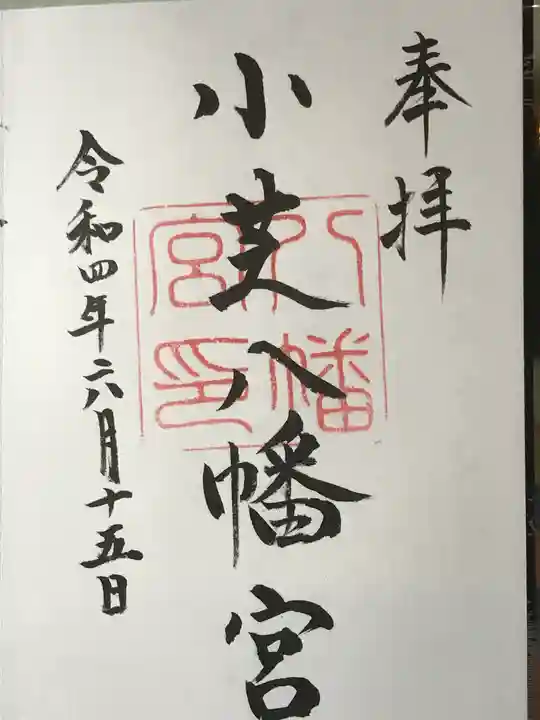 奉拝
小芝八幡宮
八幡
宮印
令和四年六月十五日